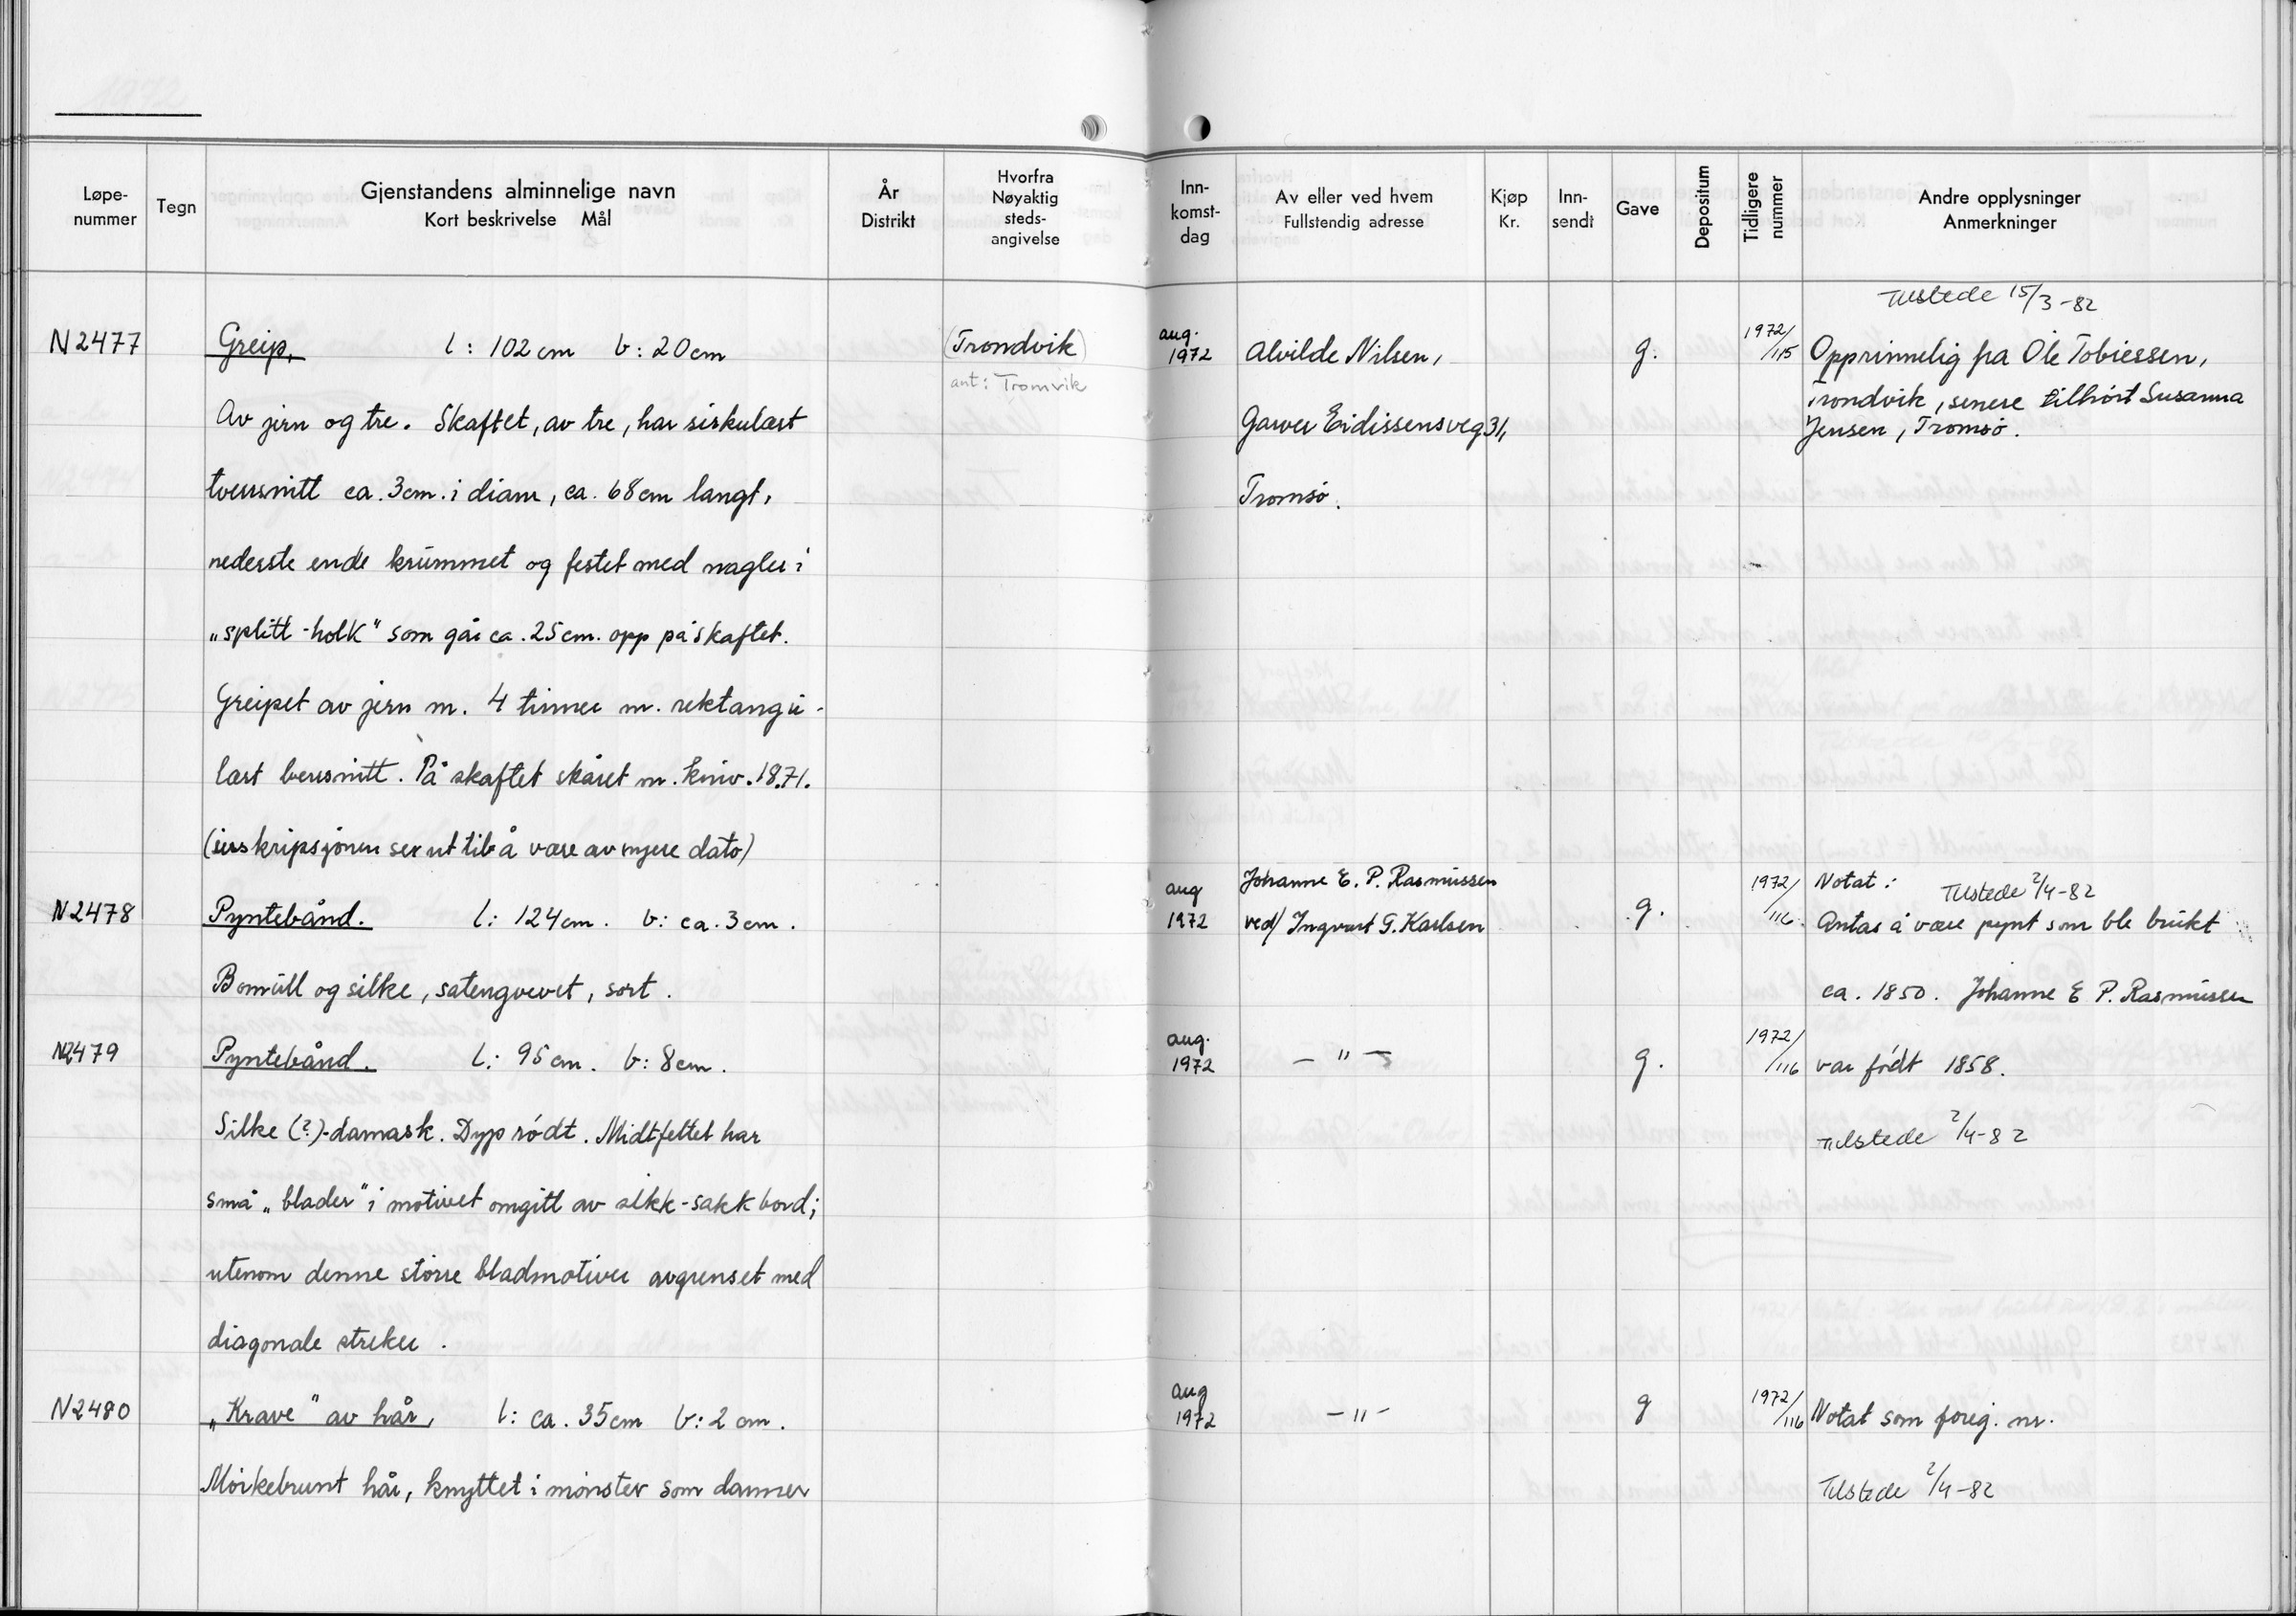 Løpe-nummer
Tegn
Gjenstandens alminnelige navn
Kort beskrivelse Mål
År
Distrikt
Hvorfra
Nøyaktig
steds-
angivelse
Inn-
komst-
dag
Av eller ved hvem
Fullstendig adresse
Kjøp
Kr.
Inn-
sendt
Gave
Depositum
Tidligere
nummer
Andre opplysninger
Anmerkninger
Tilstede 15/3-82
N2477 Greip. l: 102 cm b: 20 cm (Trondvik) aug. 1972 Alvilde Nilsen, g. 1972/115 Opprinnelig fra Ole Tobiessen,
ant: Tromvik
Trondvik, senere tilhört Susanna
Av jern og tre. Skaftet, av tre, har sirkulært Garver Eidissensveg 31, Jensen, Tromsö.
tverrsnitt ca. 3cm. i diam, ca. 68cm langt, Tromsö.
nederste ende krummet og festet med nagler i
„splitt-holk" som går ca. 25cm. opp på skaftet.
Greipet av jern m. 4 tinner m. rektangu-
lært tverrsnitt. På skaftet skåret m. kniv. 1871.
(inskripsjonen ser ut til å være av nyere dato)
Johanne E. P. Rasmussen Notat: Tilstede 2/4-82
N2478 Pyntebånd. l: 124cm. b: ca. 3cm. aug 1972 ved/ Ingvart G. Karlsen g. 1972/116 Antas å være pynt som ble brukt
Bomull og silke, satengvevet, sort. ca. 1850. Johanne E P. Rasmussen
N2479 Pyntebånd. l: 95cm. b: 8cm. aug. 1972 — " — g. 1972/116 var födt 1858.
Silke (?)-damask. Dyp rödt. Midtfeltet har Tilstede 2/4-82
små „blader" i motivet omgitt av sikk-sakk bord;
utenom denne större bladmotiver avgrenset med
diagonale streker.
N2480 „Krave" av hår, l: ca. 35cm b: 2 cm. aug 1972 — " — g 1972/116 Notat som foreg. nr.
Mörkebrunt hår, knyttet i mönster som danner Tilstede 2/4-82